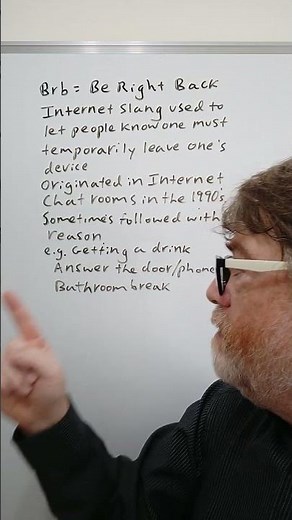 Brb = Be Right Back
Internet slang used to
let people know one must
temporarily leave one's
device
Originated in Internet
Chat rooms in the 1990's
Sometimes followed with
reason
e.g. Getting a drink
Answer the door/phone
Bathroom break